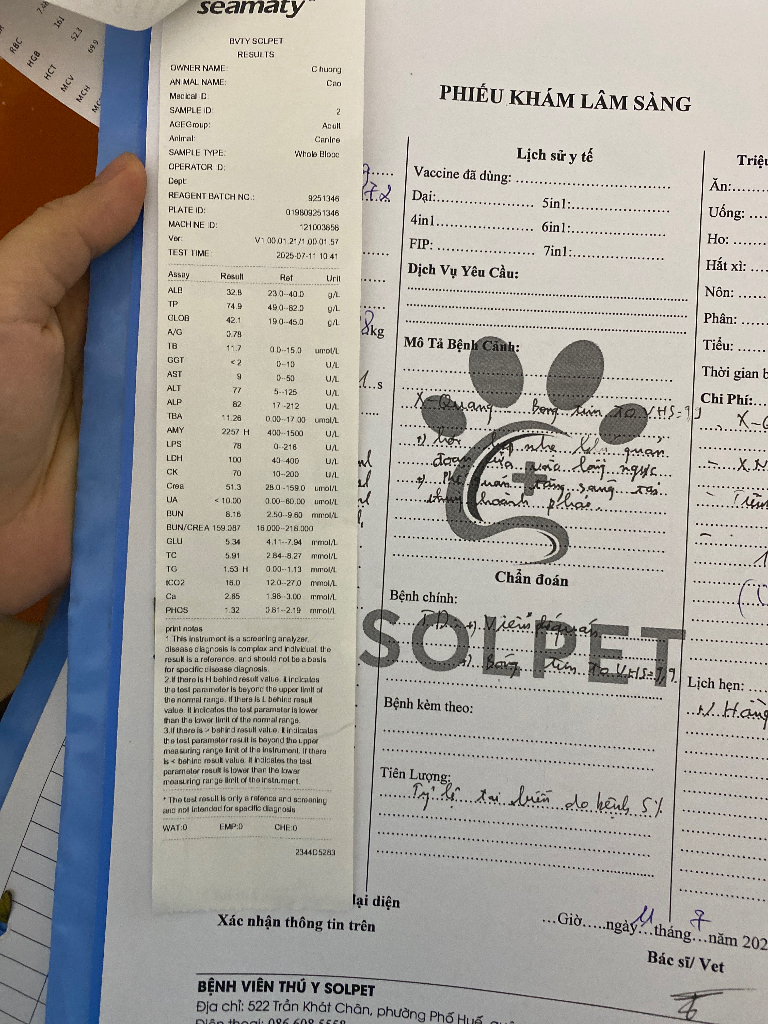 7.4
161
52.3
69.9
RBC
HGB
HCT
MCV
MCH
seamaty
BVTY SOLPET
RESULTS
OWNER NAME: C huong
AN MAL NAME: Cao
Medical D:
SAMPLE ID: 2
AGEGroup: Adult
Animal: Canine
SAMPLE TYPE: Whole Blood
OPERATOR D:
Dept:
REAGENT BATCH NO.: 9251346
PLATE ID: 019809251346
MACHINE ID: 121003658
Ver: V1.00.01.21/1.00.01.57
TEST TIME 2025-07-11 10:41
Assay Result Ref Unit
ALB 32.8 23.0--40.0 g/L
TP 74.9 49.0--82.0 g/L
GLOB 42.1 19.0--45.0 g/L
A/G 0.78
TB 11.7 0.0--15.0 umol/L
GGT <2 0--10 U/L
AST 9 0--50 U/L
ALT 77 5--125 U/L
ALP 82 17--212 U/L
TBA 11.26 0.00--17.00 umol/L
AMY 2257 H 400--1500 U/L
LPS 78 0--216 U/L
LDH 100 40--400 U/L
CK 70 10--200 U/L
Crea 51.3 28.0--159.0 umol/L
UA <10.00 0.00--60.00 umol/L
BUN 8.16 2.50--9.60 mmol/L
BUN/CREA 159.087 16.000--218.000
GLU 5.34 4.11--7.94 mmol/L
TC 5.91 2.84--8.27 mmol/L
TG 1.53 H 0.00--1.13 mmol/L
tCO2 16.0 12.0--27.0 mmol/L
Ca 2.65 1.98--3.00 mmol/L
PHOS 1.32 0.81--2.19 mmol/L
print notes
* This instrument is a screening analyzer.
disease diagnosis is complex and individual. the
result is a reference, and should not be a basis
for specific disease diagnosis.
2.If there is H behind result value. It indicates
the test parameter is beyond the upper limit of
the normal range. If there is L behind result
value. It indicates the test parameter is lower
than the lower limit of the normal range.
3.If there is > behind result value. It indicates
the test parameter result is beyond the upper
measuring range limit of the instrument. If there
is < behind result value. It indicates the test
parameter result is lower than the lower
measuring range limit of the instrument.
* The test result is only a refence and screening
and not intended for specific diagnosis
WAT:0 EMP:0 CHE:0
2344D5283
PHIẾU KHÁM LÂM SÀNG
7.2
8kg
1..s
Lịch sử y tế
Vaccine đã dùng:
Dại: 5in1:
4in1 6in1:
FIP: 7in1:
Dịch Vụ Yêu Cầu:
Mô Tả Bệnh Cảnh:
X-Quang bóng tim to VHS=9,9
+) hơi hẹp nhẹ khí quản
đoạn cửa vào lồng ngực
+) Phế quản tăng sáng tại
thùy hoành phải
Chẩn đoán
Bệnh chính:
TD: +) Viêm phế quản
+) Bóng tim to VHS=9,9
SOLPET
Bệnh kèm theo:
Tiên Lượng:
Tỷ lệ tai biến do bệnh 5%
Triệu
Ăn:
Uống:
Ho:
Hắt xì:
Nôn:
Phân:
Tiểu:
Thời gian b
Chi Phí:
X-Q
- XN
- Tiêm
Lịch hẹn:
lại diện
Xác nhận thông tin trên
...Giờ.....ngày 11 tháng 7 năm 202
Bác sĩ/ Vet
BỆNH VIỆN THÚ Y SOLPET
Địa chỉ: 522 Trần Khát Chân, phường Phố Huế, quậ
Điện thoại: 086 608 5568